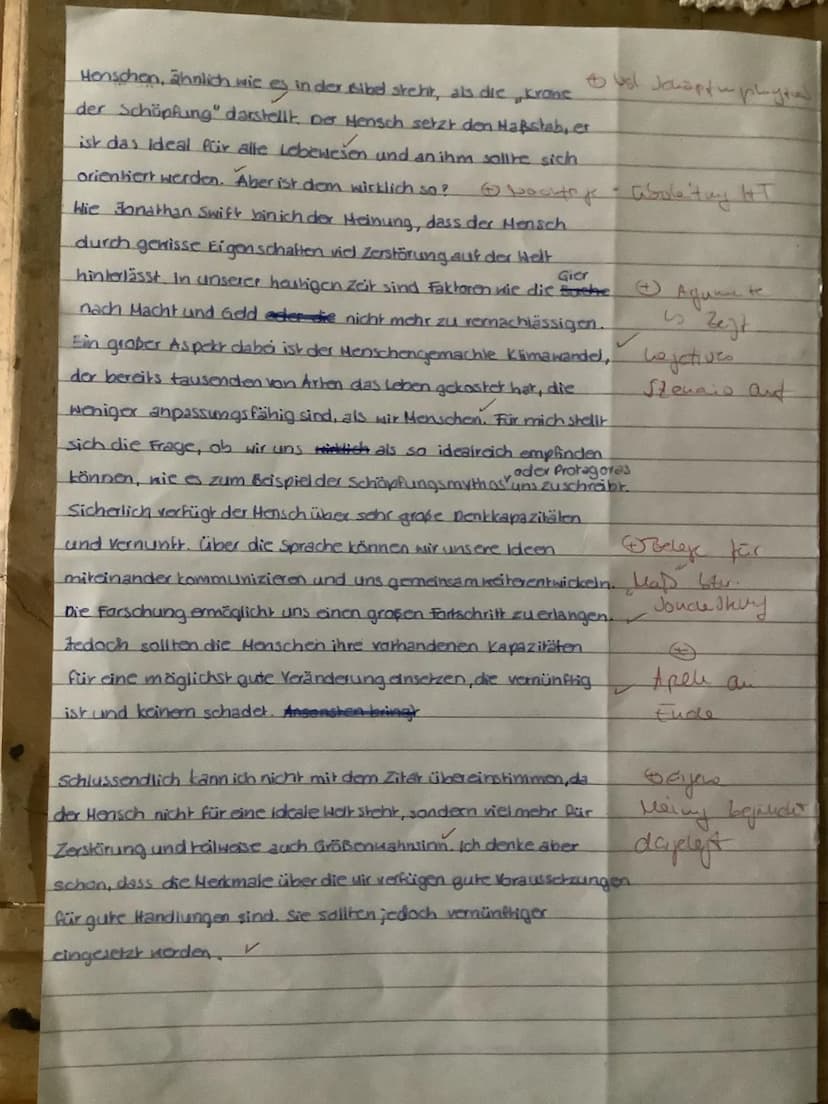 Menschen, ähnlich wie es in der Bibel steht, als die „Krone
der Schöpfung" darstellt. Der Mensch setzt den Maßstab, er
ist das Ideal für alle Lebewesen und an ihm sollte sich
orientiert werden. Aber ist dem wirklich so? Ableitung HT
Wie Jonathan Swift bin ich der Meinung, dass der Mensch
durch gewisse Eigenschaften viel Zerstörung auf der Welt
hinterlässt. In unserer heutigen Zeit sind Faktoren wie die Gier
Argumente
nach Macht und Geld oder die nicht mehr zu vernachlässigen.
↳ Zeigt
Ein großer Aspekt dabei ist der Menschengemachte Klimawandel,
negatives
der bereits tausenden von Arten das Leben gekostet hat, die
Szenario auf
weniger anpassungsfähig sind, als wir Menschen. Für mich stellt
sich die Frage, ob wir uns wirklich als so idealreich empfinden
können, wie es zum Beispiel der Schöpfungsmythos oder Protagoras uns zuschreibt.
Sicherlich verfügt der Mensch über sehr große Denkkapazitäten
und Vernunft. Über die Sprache können wir unsere Ideen
⊕ Belege für
miteinander kommunizieren und uns gemeinsam weiterentwickeln.
"Maß" bzw.
Die Forschung ermöglicht uns einen großen Fortschritt zu erlangen.
Sonderstellung
Jedoch sollten die Menschen ihre vorhandenen Kapazitäten
⊕
für eine möglichst gute Veränderung einsetzen, die vernünftig
Apell am
ist und keinem schadet. Ansonsten bringt
Ende
Schlussendlich kann ich nicht mit dem Zitat übereinstimmen, da
⊕ eigene
der Mensch nicht für eine ideale Welt steht, sondern viel mehr für
Meinung begründet
Zerstörung und teilweise auch Größenwahnsinn. Ich denke aber
dargelegt
schon, dass die Merkmale über die wir verfügen gute Voraussetzungen
für gute Handlungen sind. Sie sollten jedoch vernünftiger
eingesetzt werden.